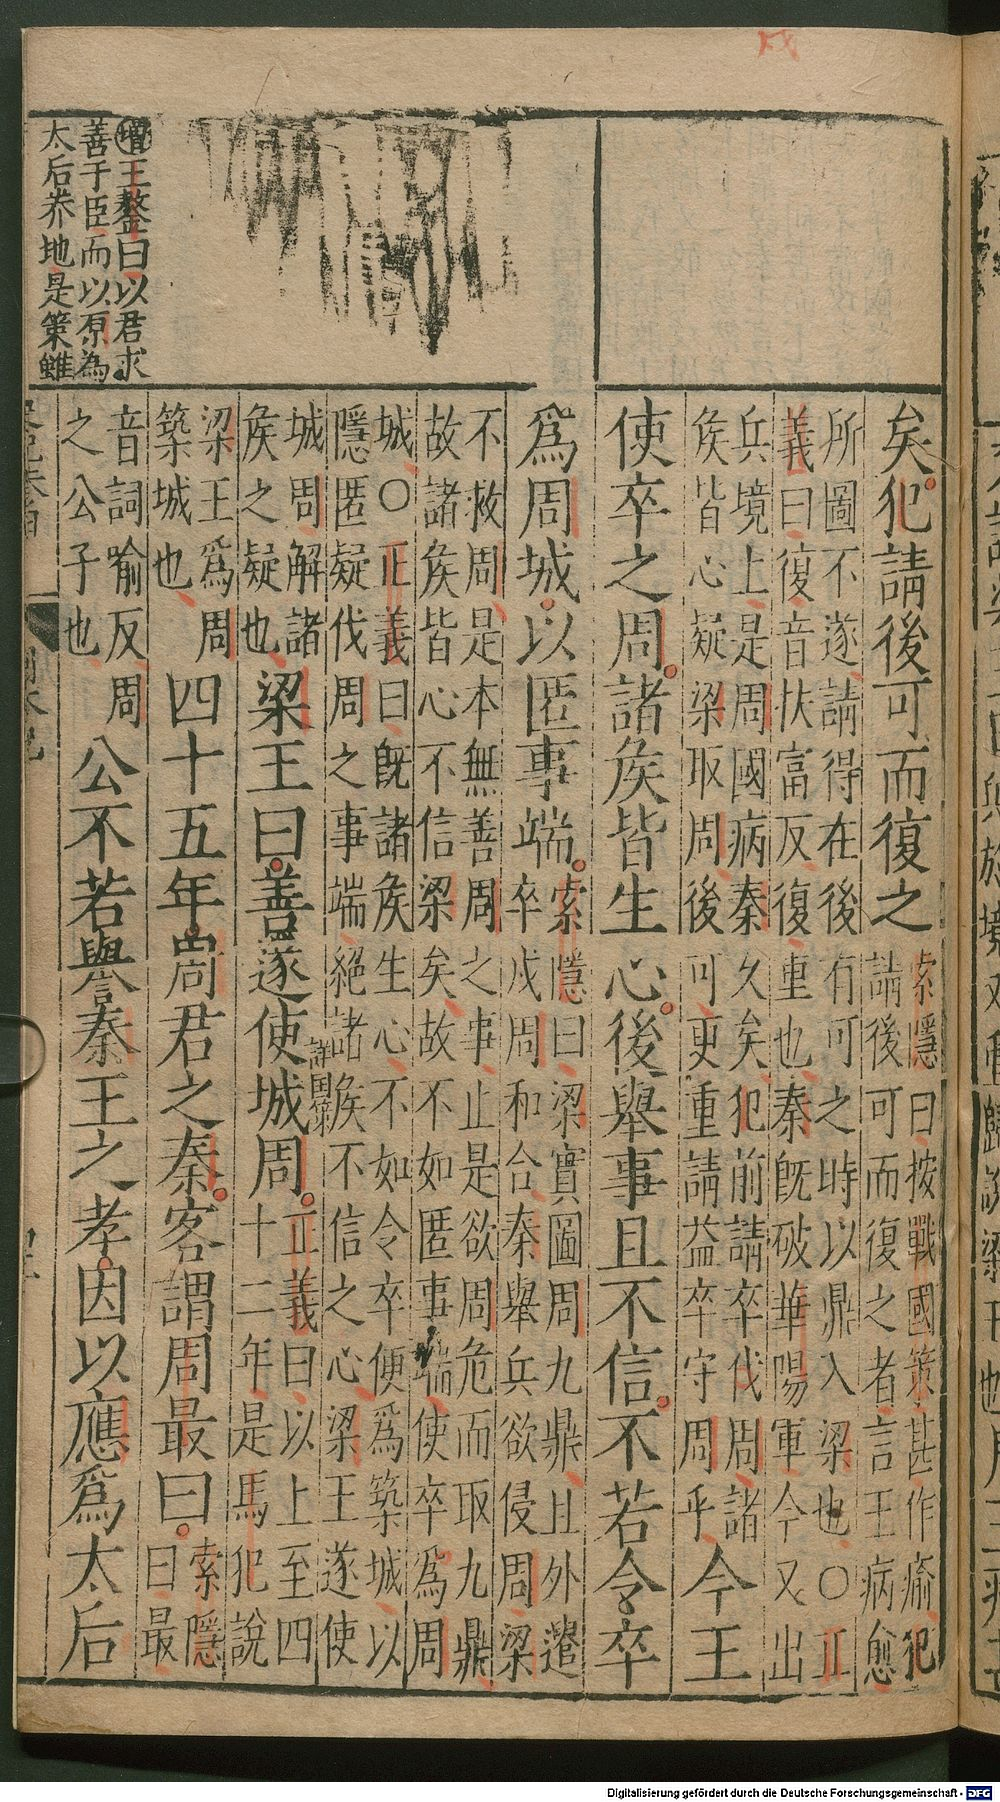 增王鏊曰以君求
善于臣而以原為
太后养地是策雖
矣犯請後可而復之
索隱曰按戰國策甚作瘉犯
請後可而復之者言王病愈
所圖不遂請得在後有可之時以鼎入梁也〇正
義曰復音扶富反復重也秦既破華陽軍今又出
兵境上是周國病秦久矣犯前請卒伐周諸
矦皆心疑梁取周後可更重請益卒守周乎
今王
使卒之周諸矦皆生心後舉事且不信不若令卒
為周城以匿事端
索隱曰梁實圖周九鼎且外遣
卒戍周和合秦舉兵欲侵周梁
不救周是本無善周之事止是欲周危而取九鼎
故諸矦皆心不信梁矣故不如匿事端使卒為周
城〇正義曰既諸矦生心不如令卒便為築城以
隱匿疑伐周之事端絕諸矦不信之心梁王遂使
城周解諸
矦之疑也
梁王曰善遂使城周
詳国策
正義曰以上至四
十二年是馬犯說
梁王為周
築城也
四十五年周君之秦客謂周最曰
索隱
曰最
音詞喻反周
之公子也
公不若譽秦王之孝因以應為太后
Digitalisierung gefördert durch die Deutsche Forschungsgemeinschaft - DFG